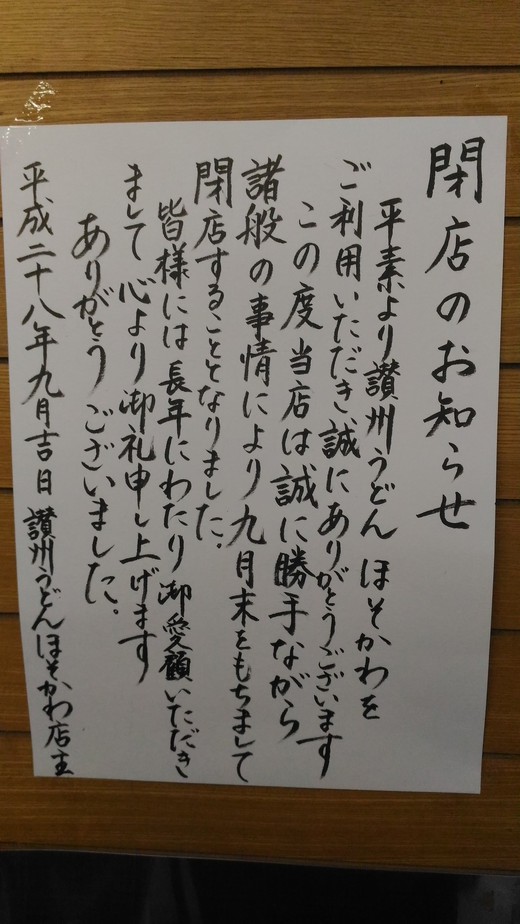 閉店のお知らせ
平素より讃州うどん ほそかわを
ご利用いただき、誠にありがとうございます
この度当店は誠に勝手ながら
諸般の事情により九月末をもちまして
閉店することとなりました。
皆様には長年にわたり御愛顧いただき
まして心より御礼申し上げます
ありがとうございました。
平成二十八年九月吉日 讃州うどんほそかわ店主